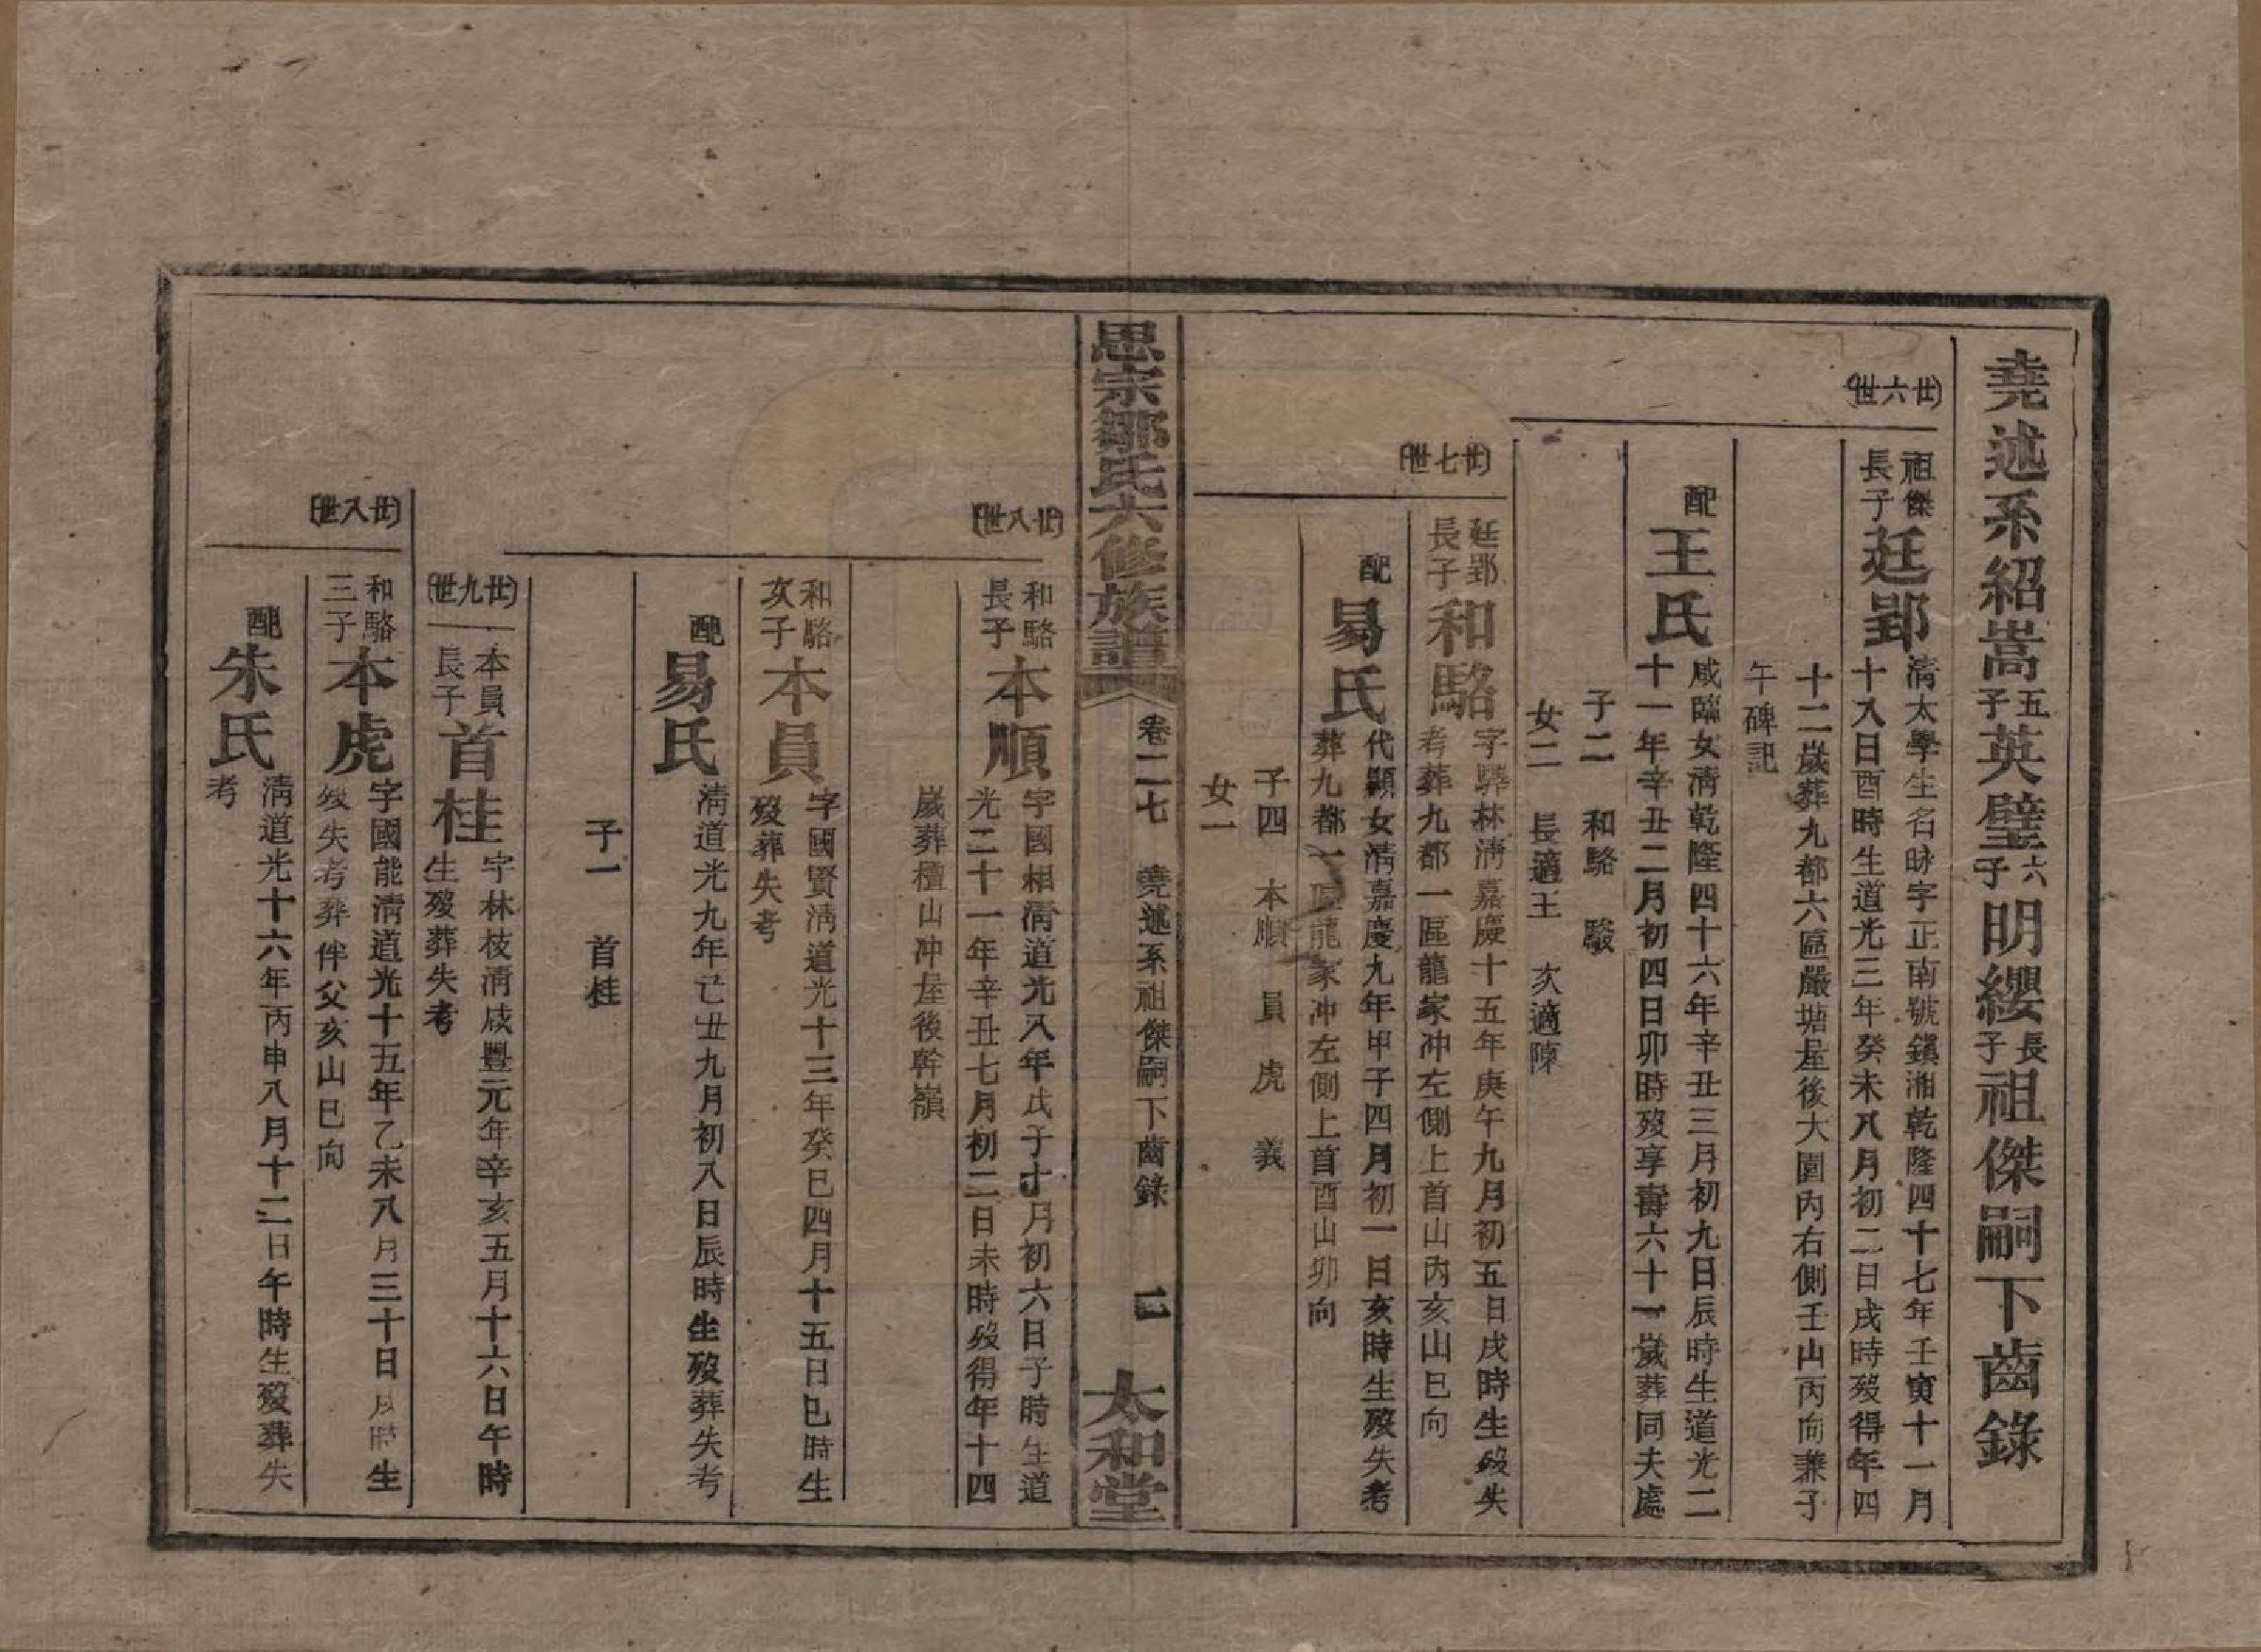 堯述系紹嵩五子英璧六子明纓長子祖傑嗣下齒錄
廿六世
祖傑長子廷郢
清太學生名昹字正南號鎭湘乾隆四十七年壬寅十一月
十八日酉時生道光三年癸未八月初二日戌時歿得年四
十二歲葬九都六區嚴塘屋後大園內右側壬山丙向兼子
午碑記
配王氏
咸臨女清乾隆四十六年辛丑三月初九日辰時生道光二
十一年辛丑二月初四日卯時歿享壽六十一歲葬同夫處
子二 和駱 駿
女二 長適王 次適陳
廿七世
廷郢長子和駱
字驊林清嘉慶十五年庚午九月初五日戌時生歿失
考葬九都一區龍家冲左側上首山內亥山巳向
配易氏
代顯女清嘉慶九年甲子四月初一日亥時生歿失考
葬九都一區龍家冲左側上首酉山卯向
子四 本順 員 虎 義
女一
思宗鄒氏六修族譜 卷二七 堯述系祖傑嗣下齒錄 二 太和堂
廿八世
和駱長子本順
字國相清道光八年戊子十月初六日子時生道
光二十一年辛丑七月初二日未時歿得年十四
歲葬檀山冲屋後幹嶺
和駱次子本員
字國賢清道光十三年癸巳四月十五日巳時生
歿葬失考
配易氏
清道光九年己丑九月初八日辰時生歿葬失考
子一 首桂
廿九世
本員長子首桂
字林枝清咸豐元年辛亥五月十六日午時
生歿葬失考
廿八世
和駱三子本虎
字國能清道光十五年乙未八月三十日時生
歿失考葬伴父亥山巳向
配朱氏
清道光十六年丙申八月十二日午時生歿葬失
考